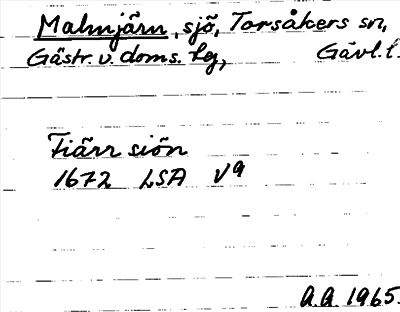 Malmjärn, sjö, Torsåkers sn,
Gästr. v. doms. tg, Gävl. l.
Tiärr siön
1672 LSA V9
A.A. 1965.